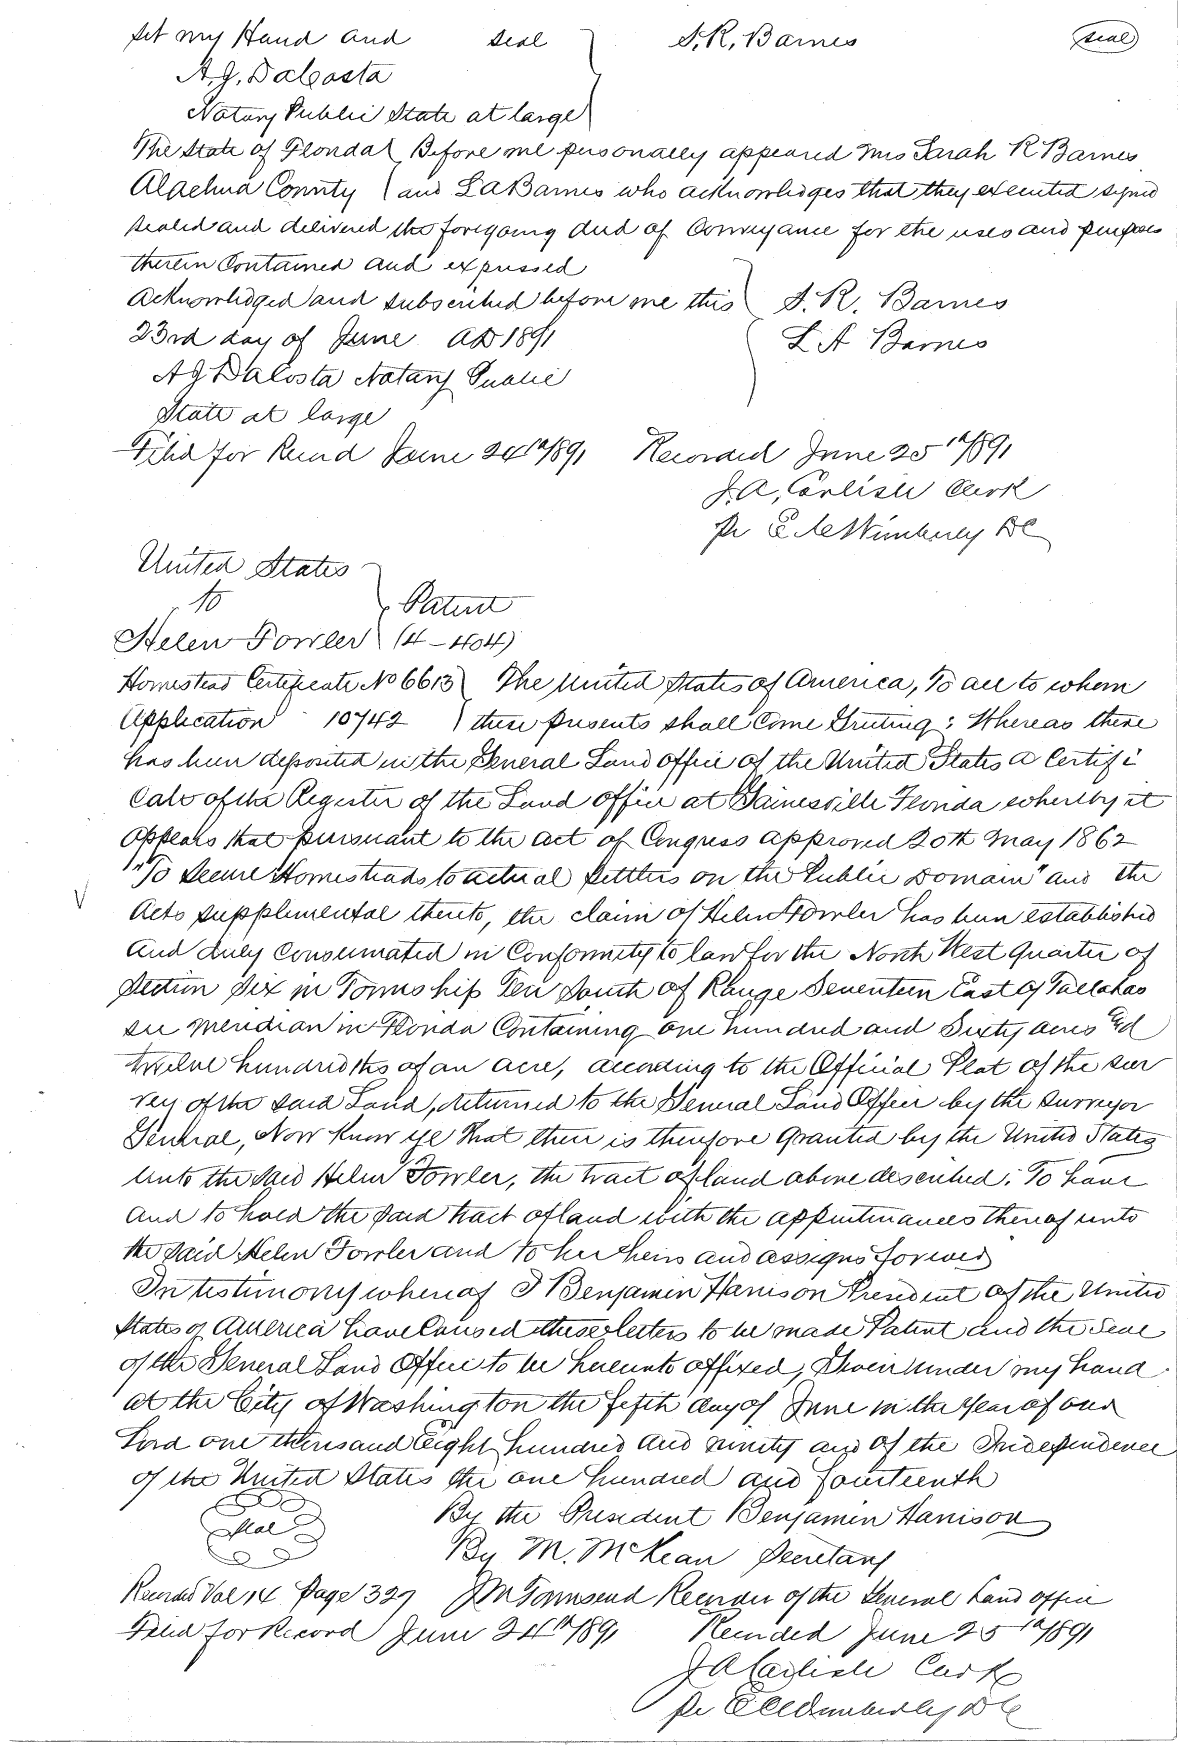 Set my Hand and seal } S. R. Barnes (seal)
A. J. DaCosta
Notary Public State at large
The State of Florida } Before me personally appeared Mrs Sarah R Barnes
Alachua County } and L A Barnes who acknowledges that they executed signed
sealed and delivered the foregoing deed of Conveyance for the uses and purposes
therein Contained and expressed
Acknowledged and subscribed before me this } S. R. Barnes
23rd day of June AD 1891 L A Barnes
A J DaCosta Notary Public
State at large
Filed for Record June 24th/891 Recorded June 25th/891
J. A. Carlisle Clerk
Pr DC
United States
to } Patent
Helen Fowler } (4-404)
Homestead Certificate No 6613 } The United States of America, To all to whom
Application 10742 } these presents shall Come Greeting: Whereas there
has been deposited in the General Land office of the United States a Certifi
Cate of the Register of the Land office at Gainesville Florida whereby it
appears that pursuant to the act of Congress approved 20th May 1862
"To Secure Homesteads to actual Settlers on the Public Domain" and the
Acts supplimental thereto, the claim of Helen Fowler has been established
and duly Consumated in Conformity to law for the North West Quarter of
Section Six in Township Ten South of Range Seventeen East of Tallahas
see Meridian in Florida Containing one hundred and Sixty acres and
twelve hundredths of an acre, according to the Official Plat of the sur
vey of the said Land, returned to the General Land Office by the surveyor
General, Now Know ye That there is therefore Granted by the United States
Unto the said Helen Fowler, the tract of land above described. To have
and to hold the said tract of land with the appurtenances thereof unto
the said Helen Fowler and to her heirs and assigns forever
In testimony whereof I Benjamin Harrison President of the United
States of America have Caused these letters to be made Patent and the Seal
of the General Land Office to be hereunto affixed, Given under my hand
at the City of Washington the fifth day of June in the Year of our
Lord one thousand Eight hundred and ninety and of the Independence
of the United States the one hundred and fourteenth
Seal By the President Benjamin Harrison
By M. McKean Secretary
Recorded Vol 14 Page 327 J M Townsend Recorder of the General Land office
Filed for Record June 24th/891 Recorded June 25th/891
J A Carlisle Clerk
Pr DC